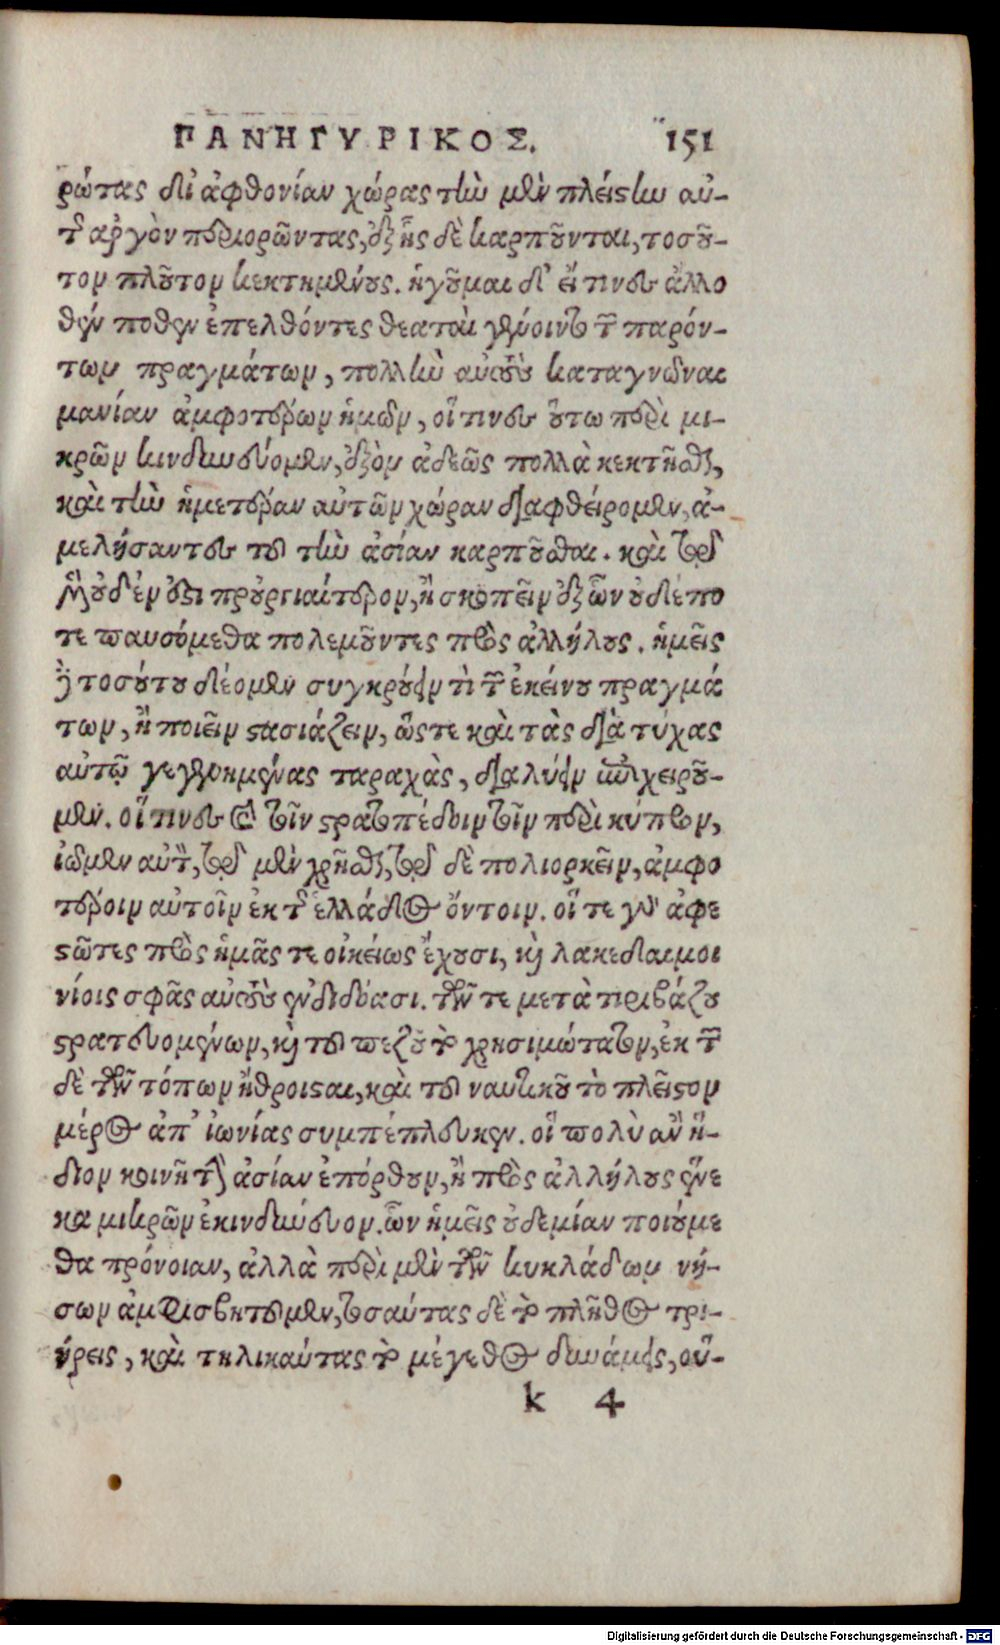 ΠΑΝΗΓΥΡΙΚΟΣ. 151
ρώτας δι' ἀφθονίαν χώρας τὴν μὲν πλείστην αὐ-
τῆς ἀργὸν περιορῶντας, ἐξ ἧς δὲ καρποῦνται, τοσοῦ-
τον πλοῦτον κεκτημένους. ἡγοῦμαι δ' εἴ τινες ἄλλο
θέν ποθεν ἐπελθόντες θεαταὶ γένοιντο τῶν παρόν-
των πραγμάτων, πολλὴν αὐτοὺς καταγνῶναι
μανίαν ἀμφοτέρων ἡμῶν, οἵτινες οὕτω περὶ μι-
κρῶν κινδυνεύομεν, ἐξὸν ἀδεῶς πολλὰ κεκτῆσθαι,
καὶ τὴν ἡμετέραν αὐτῶν χώραν διαφθείρομεν, ἀ-
μελήσαντες τοῦ τὴν ἀσίαν καρποῦσθαι. καὶ τῷ
μὲν οὐδέν ἐστι προὐργιαίτερον, ἢ σκοπεῖν ἐξ ὧν οὐδέπο
τε παυσόμεθα πολεμοῦντες πρὸς ἀλλήλους. ἡμεῖς
δὲ τοσούτου δέομεν συγκρούειν τὶ τῶν ἐκείνου πραγμά
των, ἢ ποιεῖν στασιάζειν, ὥστε καὶ τὰς διὰ τύχας
αὐτῷ γεγενημένας ταραχὰς, διαλύειν ἐπιχειροῦ-
μεν. οἵτινες καὶ τοῖν στρατοπέδοιν τοῖν περὶ κύπρον,
ἐῶμεν αὐτὸν, τῷ μὲν χρῆσθαι, τῷ δὲ πολιορκεῖν, ἀμφο
τέροιν αὐτοῖν ἐκ τῆς ἑλλάδος ὄντοιν. οἵ τε γὰρ ἀφε
στῶτες πρὸς ἡμᾶς τε οἰκείως ἔχουσι, καὶ λακεδαιμο
νίοις σφᾶς αὐτοὺς ἐνδιδόασι. τῶν τε μετὰ τιριβάζου
στρατευομένων, καὶ τοῦ πεζοῦ τὸ χρησιμώτατον, ἐκ τῶν
δὲ τῶν τόπων ἤθροισται, καὶ τοῦ ναυτικοῦ τὸ πλεῖστον
μέρος ἀπ' ἰωνίας συμπέπλευκεν. οἳ πολὺ ἂν ἥ-
διον κοινῇ τὴν ἀσίαν ἐπόρθουν, ἢ πρὸς ἀλλήλους ἕνε
κα μικρῶν ἐκινδύνευον. ὧν ἡμεῖς οὐδεμίαν ποιούμε
θα πρόνοιαν, ἀλλὰ περὶ μὲν τῶν κυκλάδων νή-
σων ἀμφισβητοῦμεν, τοσαύτας δὲ τὸ πλῆθος τρι-
ήρεις, καὶ τηλικαύτας τὸ μέγεθος δυνάμεις, οὕ-
k 4
Digitalisierung gefördert durch die Deutsche Forschungsgemeinschaft - DFG